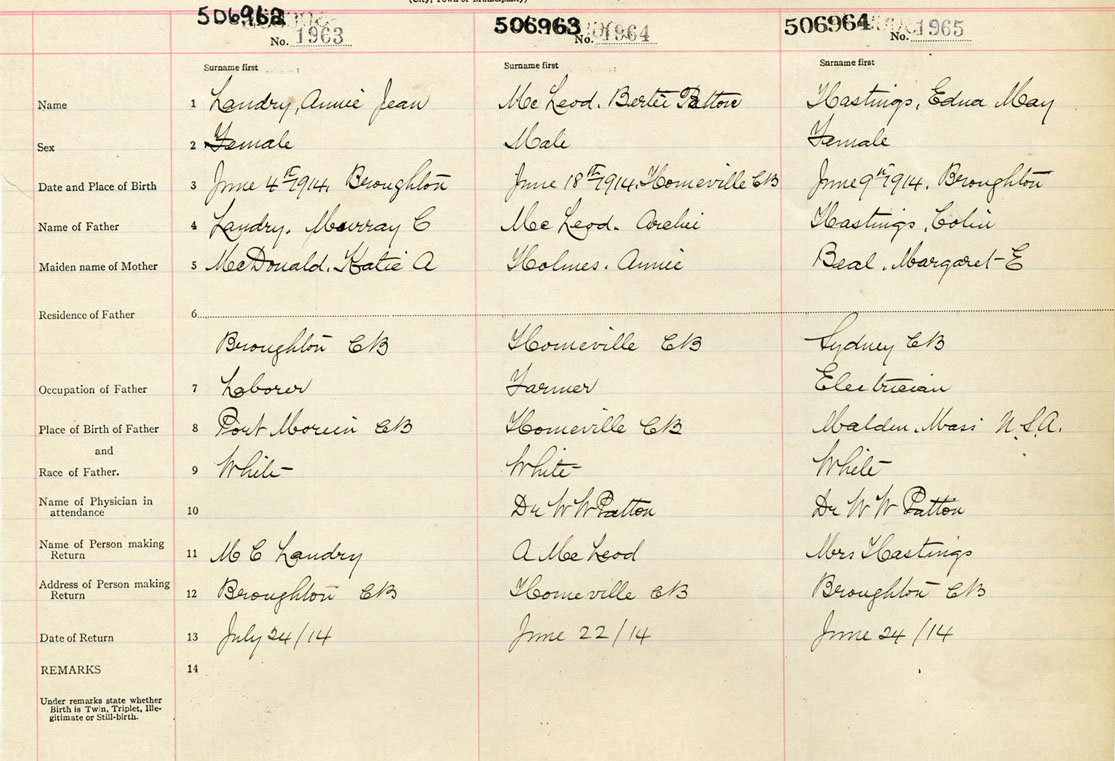 (City, Town or Municipality)
506962 No. 1963 506963 No. 1964 506964 No. 1965
Surname first Surname first Surname first
Name 1 Landry, Annie Jean Mc Leod. Bertie Patton Hastings, Edna May
Sex 2 Female Male Female
Date and Place of Birth 3 June 4th 1914, Broughton June 18th 1914. Homeville CB June 9th 1914. Broughton
Name of Father 4 Landry. Murray C Mc Leod. Archie Hastings, Colin
Maiden name of Mother 5 McDonald. Katie A Holmes. Annie Beal. Margaret E
Residence of Father 6
Broughton CB Homeville CB Sydney CB
Occupation of Father 7 Laborer Farmer Electrician
Place of Birth of Father 8 Port Morien CB Homeville CB Malden. Mass U.S.A.
and
Race of Father. 9 White White White
Name of Physician in
attendance 10 Dr W W Patton Dr W W Patton
Name of Person making
Return 11 M C Landry A Mc Leod Mrs Hastings
Address of Person making
Return 12 Broughton CB Homeville CB Broughton CB
Date of Return 13 July 24/14 June 22/14 June 24/14
REMARKS 14
Under remarks state whether
Birth is Twin, Triplet, Ille-
gitimate or Still-birth.